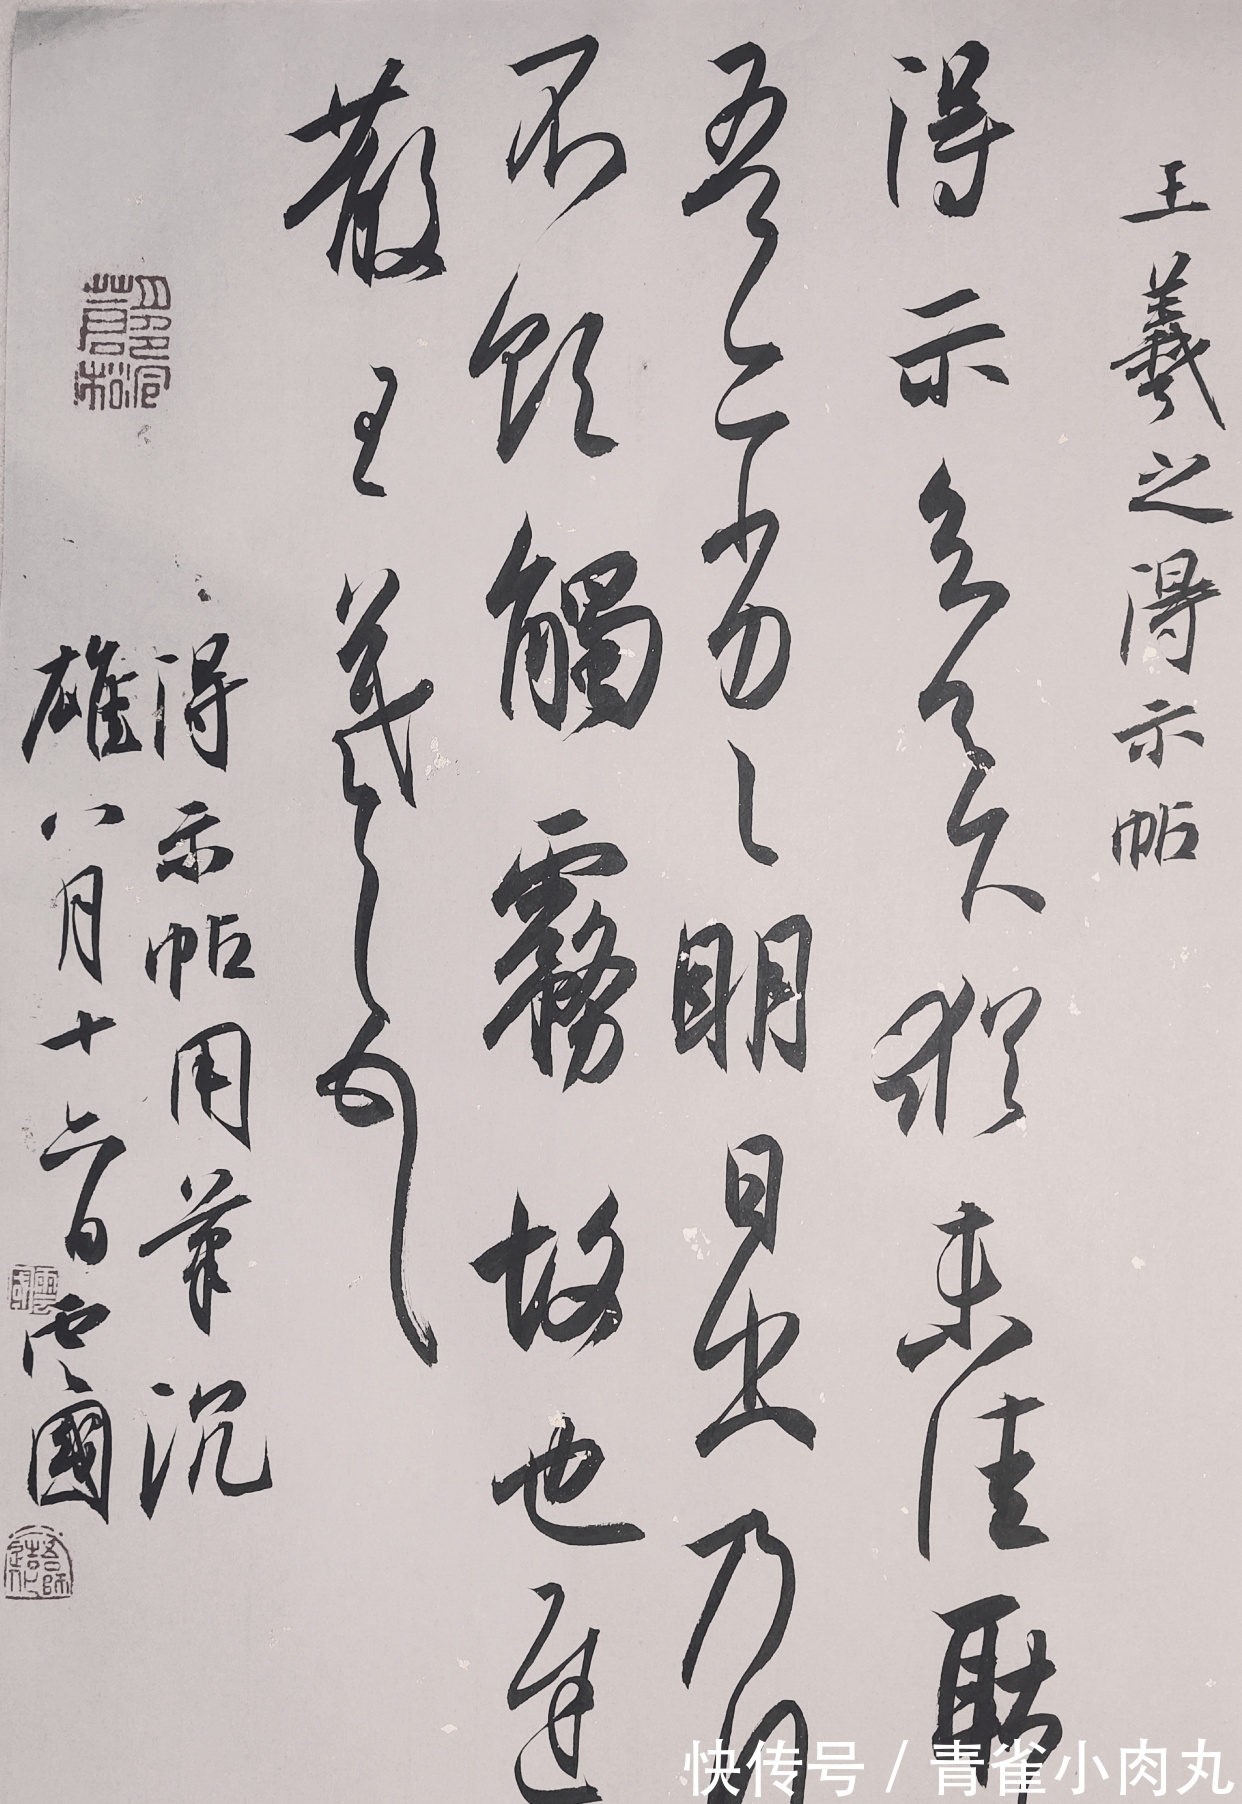 王羲之得示帖
得示知足下猶未佳耿
吾亦劣々明日出乃行
不欲觸霧故也遲
散王羲之頓首
得示帖用筆沉
雄八月十六日雲國
快传号 / 青雀小肉丸